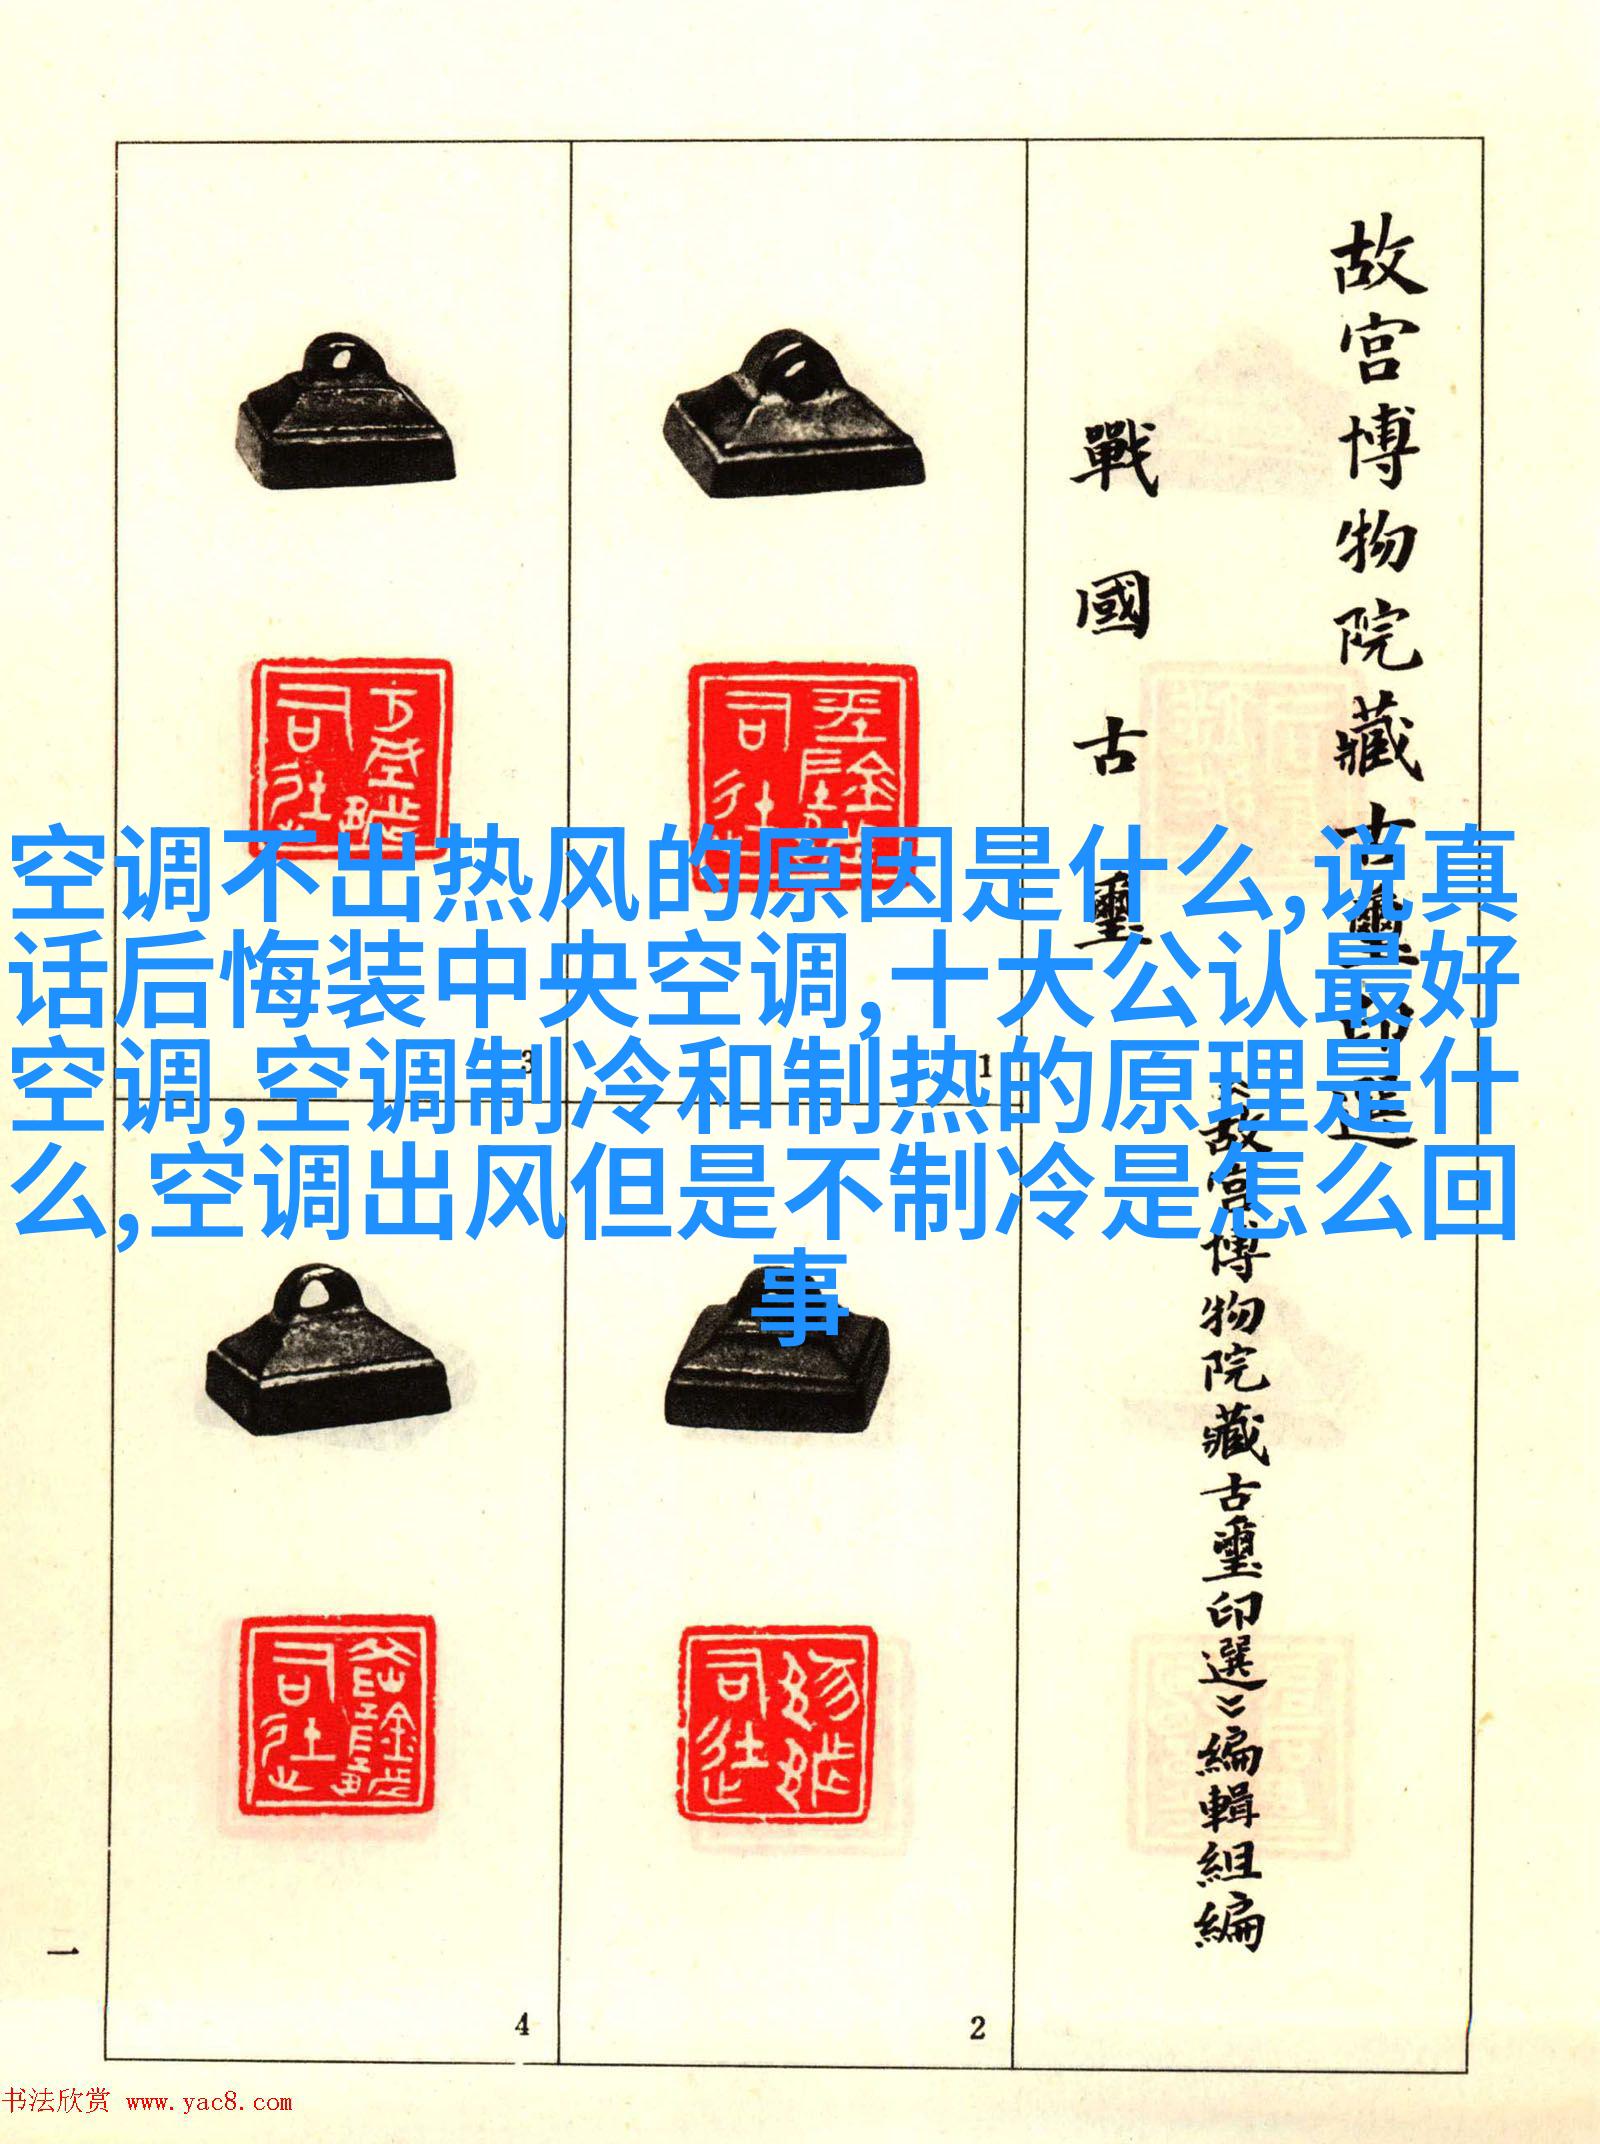 空调不出热风的原因是什么,说真
话后悔装中央空调,十大公认最好
空调,空调制冷和制热的原理是什
么,空调出风但是不制冷是怎么回
事
故宫博物院藏古璽印選
《故宫博物院藏古璽印選》編輯組編
戰國古璽
1
2
3
4
一
书法欣赏 www.yac8.com